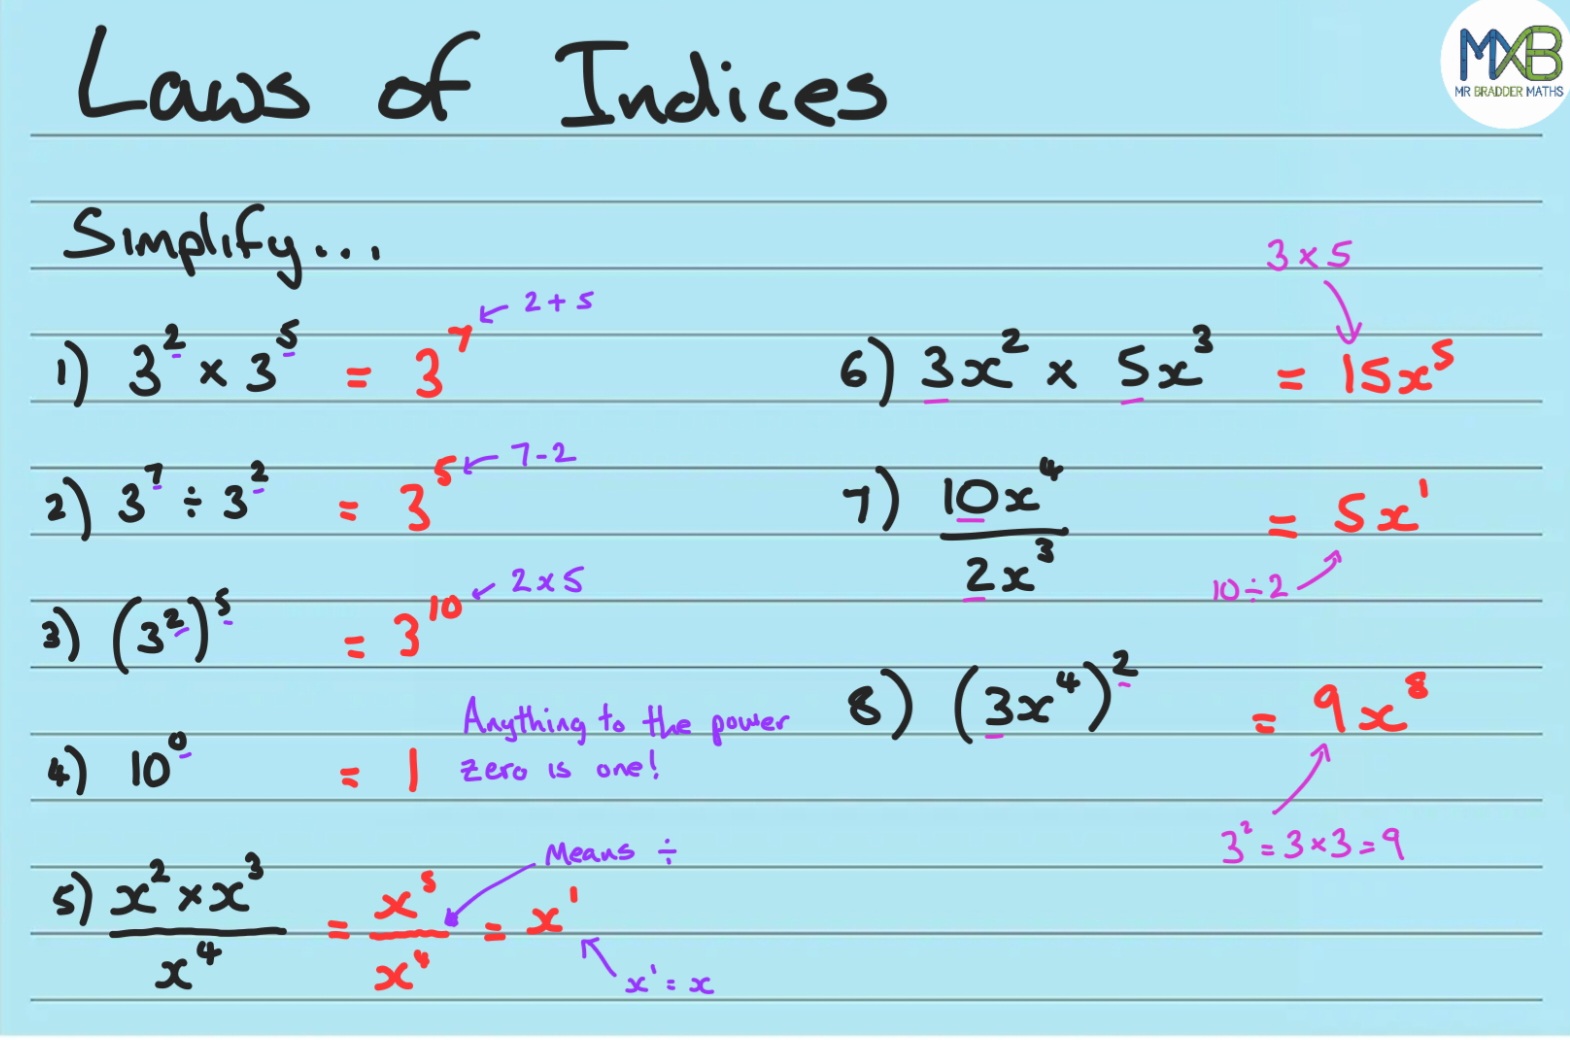 Laws of Indices
MXB
MR BRADDER MATHS
Simplify...
1) 3² × 3⁵ = 3⁷
2 + 5
2) 3⁷ ÷ 3² = 3⁵
7 - 2
3) (3²)⁵ = 3¹⁰
2 × 5
4) 10⁰ = 1
Anything to the power
zero is one!
5) x² × x³ / x⁴ = x⁵ / x⁴ = x¹
Means ÷
x¹ = x
6) 3x² × 5x³ = 15x⁵
3 × 5
7) 10x⁴ / 2x³ = 5x¹
10 ÷ 2
8) (3x⁴)² = 9x⁸
3² = 3 × 3 = 9